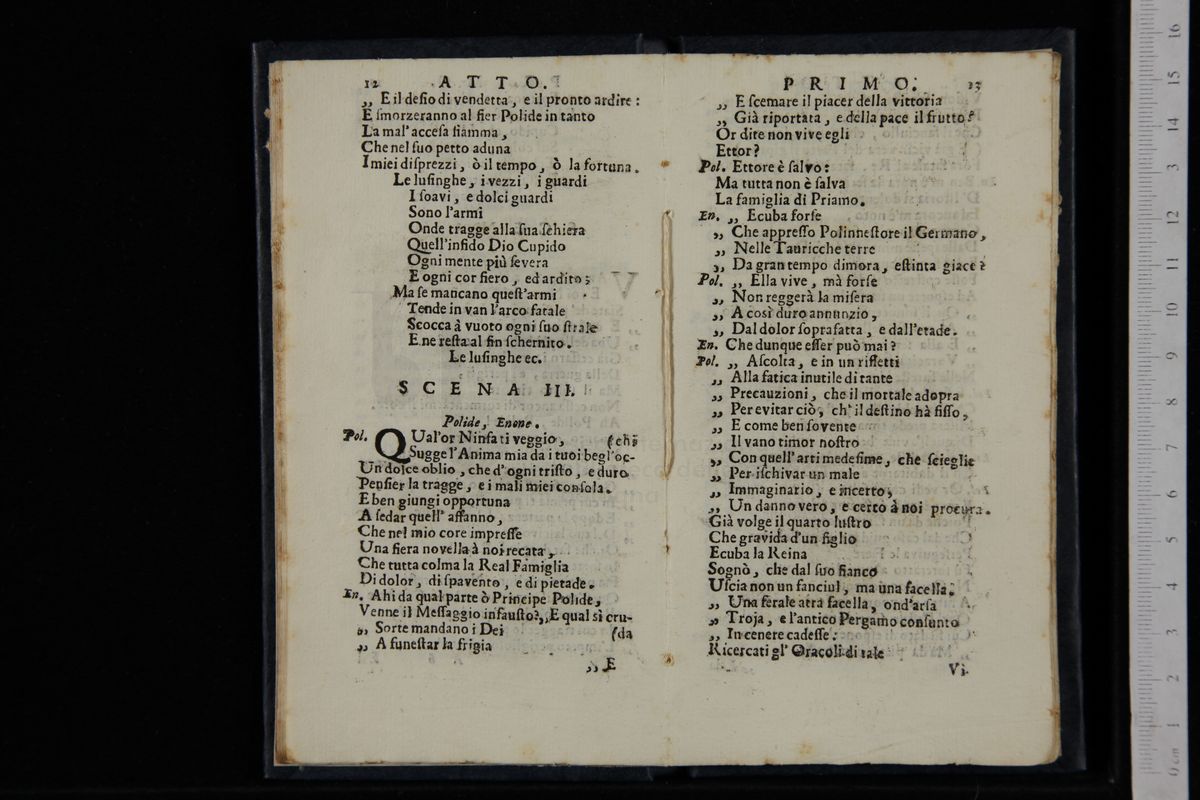 12 ATTO.
„ E il deſio di vendetta, e il pronto ardire:
E ſmorzeranno al fier Polide in tanto
La mal' acceſa fiamma,
Che nel ſuo petto aduna
I miei diſprezzi, ò il tempo, ò la fortuna.
Le luſinghe, i vezzi, i guardi
I ſoavi, e dolci guardi
Sono l'armi
Onde tragge alla ſua ſchiera
Quell'infido Dio Cupido
Ogni mente più ſevera
E ogni cor fiero, ed ardito;
Ma ſe mancano queſt'armi
Tende in van l'arco fatale
Scocca à vuoto ogni ſuo ſtrale
E ne reſta al fin ſchernito.
Le luſinghe ec.
SCENA III.
Polide, Enone.
Pol. QUal'or Ninfa ti veggio, (chi
Sugge l'Anima mia da i tuoi begl'oc-
Un dolce oblio, che d'ogni triſto, e duro
Penſier la tragge, e i mali miei conſola.
E ben giungi opportuna
A ſedar quell' affanno,
Che nel mio core impreſſe
Una fiera novella à noi recata,
Che tutta colma la Real Famiglia
Di dolor, di ſpavento, e di pietade.
En. Ahi da qual parte ò Principe Polide,
Venne il Meſſaggio infauſto?„E qual sì cru-
„ Sorte mandano i Dei (da
„ A funeſtar la frigia
„ E
PRIMO. 13
„ E ſcemare il piacer della vittoria
„ Già riportata, e della pace il frutto?
Or dite non vive egli
Ettor?
Pol. Ettore è ſalvo:
Ma tutta non è ſalva
La famiglia di Priamo.
En. „ Ecuba forſe
„ Che appreſſo Polinneſtore il Germano,
„ Nelle Tauricche terre
„ Da gran tempo dimora, eſtinta giace?
Pol. „ Ella vive, mà forſe
„ Non reggerà la miſera
„ A così duro annunzio,
„ Dal dolor ſoprafatta, e dall'etade.
En. Che dunque eſſer può mai?
Pol. „ Aſcolta, e in un rifletti
„ Alla fatica inutile di tante
„ Precauzioni, che il mortale adopra
„ Per evitar ciò, ch' il deſtino hà fiſſo,
„ E come ben ſovente
„ Il vano timor noſtro
„ Con quell'arti medeſime, che ſcieglie
„ Per iſchivar un male
„ Immaginario, e incerto,
„ Un danno vero, e certo à noi procura.
Già volge il quarto luſtro
Che gravida d'un figlio
Ecuba la Reina
Sognò, che dal ſuo fianco
Uſcia non un fanciul, ma una facella.
„ Una ferale atra facella, ond'arſa
„ Troja, e l'antico Pergamo conſunto
„ In cenere cadeſſe:
Ricercati gl' Oracoli di tale
Vi-